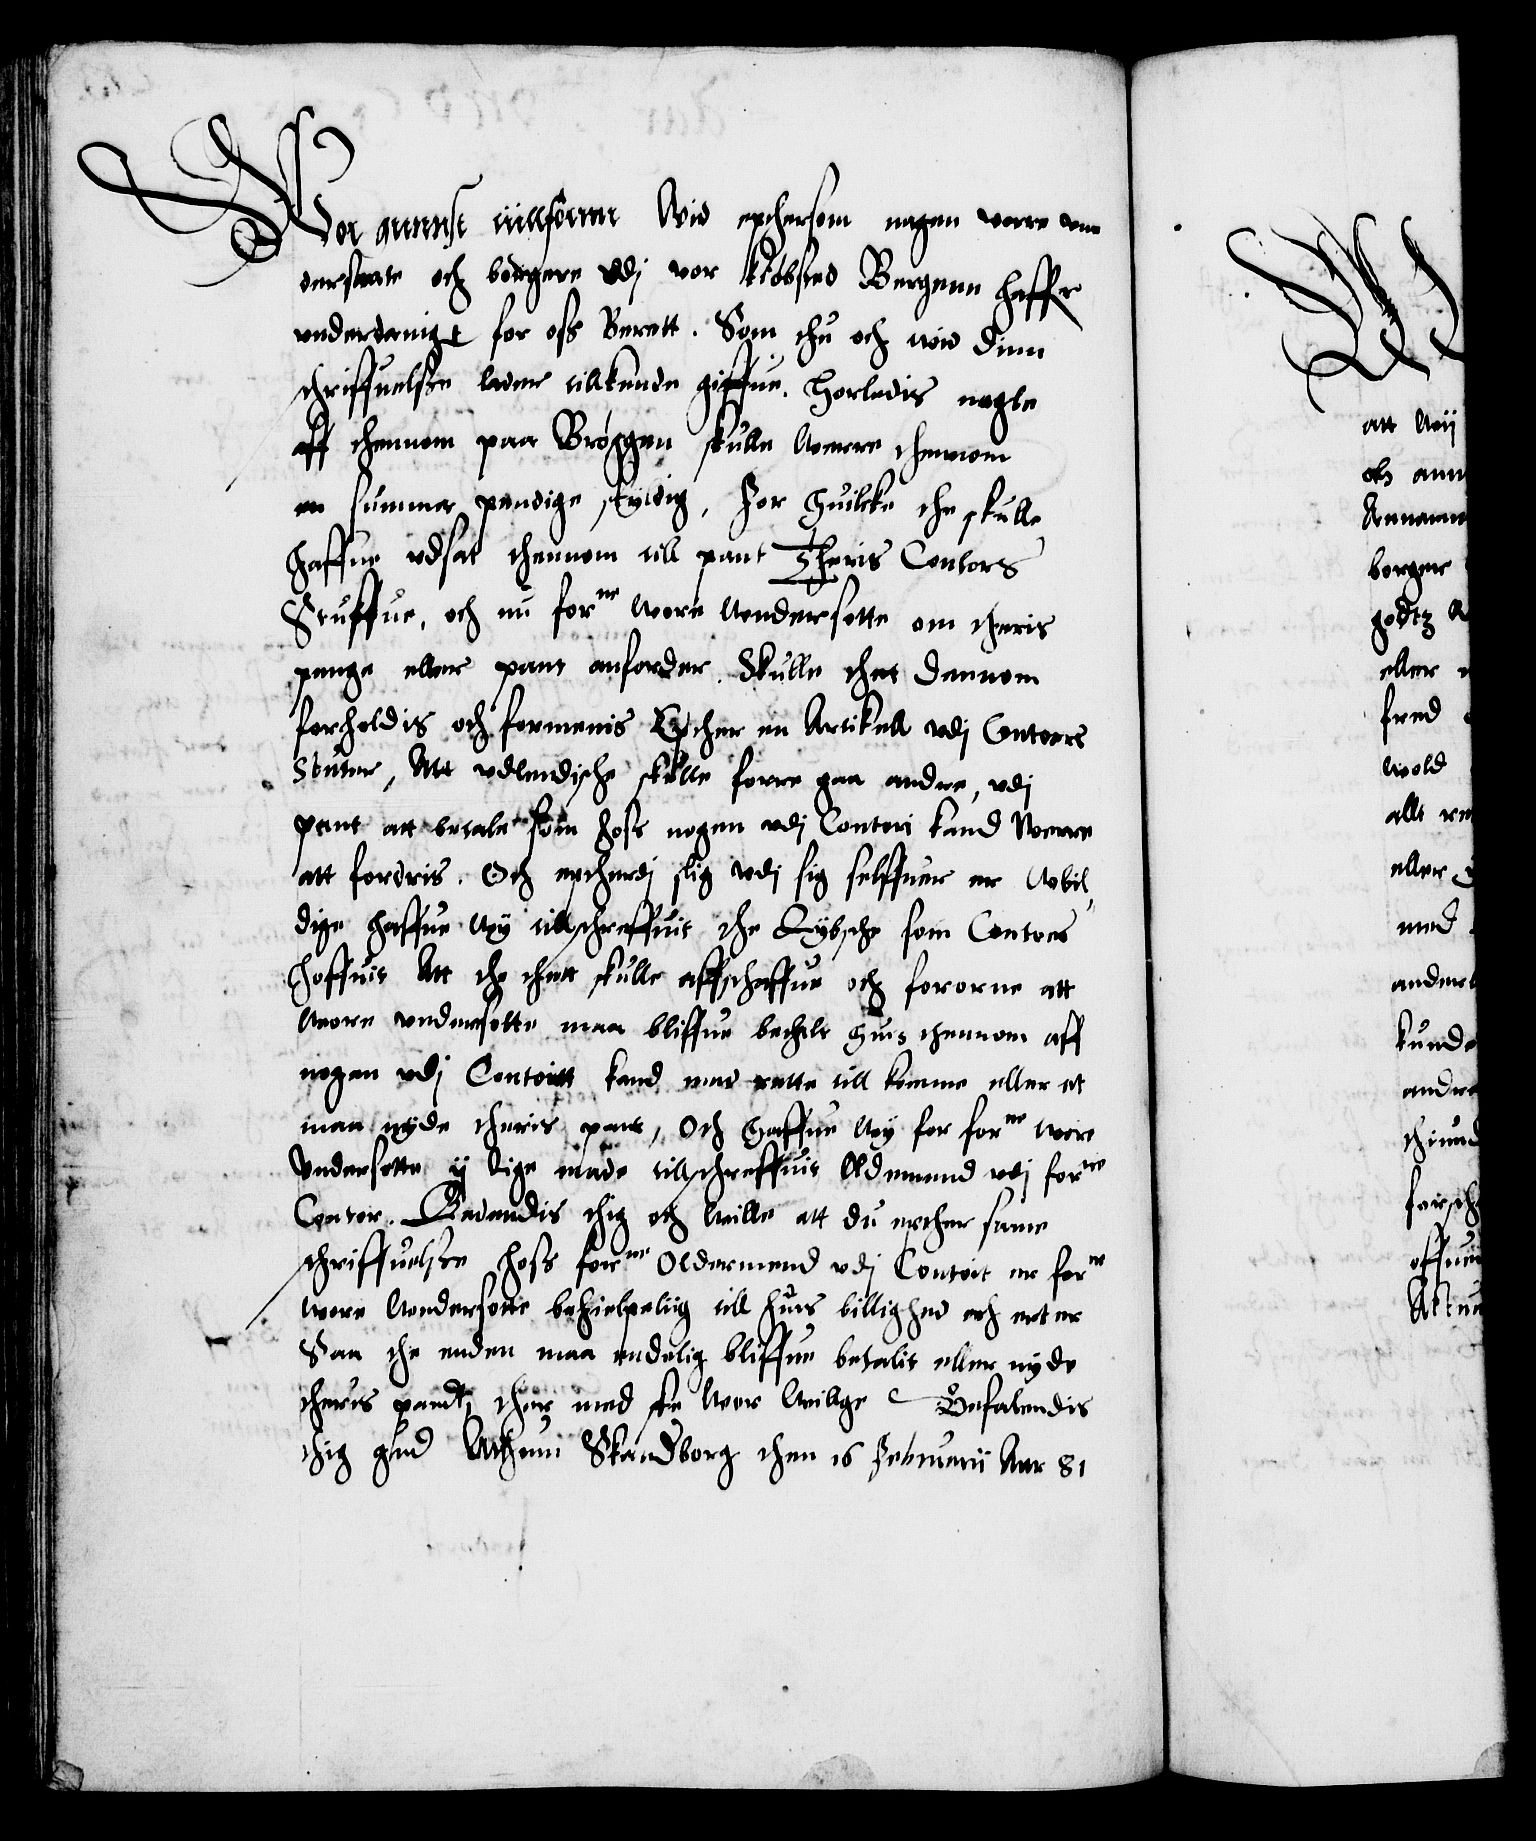 Vor gunst tillforne Wid epthersom nogen vorre vn
dersaate och borgere vdj vor kiøbsted Bergenn haffr
vnderdanigt for oss Berett. Som thu och wid dinn
schriffuelsse lader tillkende giffue. Horledis nogle
aff thennom paa Brøggen skulle werre thennom
en summa pendige skyldig, For huilcke the skulle
haffue vdsat thennom till pant Theris Contors
Stuffue, och nu forne wore Wndersotte om theris
penge eller pant anforder. Skulle thet dennom
forholdis och formenis Epther en Artikell vdj Contoers
Statuter, Att vdlendische skulle forre gaa andre, vdj
pant att betale som hoss nogen vdj Contori kand Werre
att fordris. Och eptherdj slig vdj sig selffuer er Wbil
dige haffue Wy tillschreffuit the Lybsche som Contoers
hoffuit Att the thett skulle affschaffue och forordne att
Wore vndersotte maa bliffue bethalt huis thennom aff
nogen vdj Contoritt kand med rette till komme eller et
maa nyde theris pant, Och haffue Wy for forne wore
Vndersotte ij lige made tillschreffuit Oldermend vdj forne
Contor. Bedendis thig och Wille att du epther same
schriffuelsse hoss forne Oldermend vdj Contorit er forne
wore Wndersotte behielpeliig till huis billighed och ret er
Saa the enden maa endelig bliffue betalit eller nyde
theris pandt, ther med ske Wor Willge Befalendis
thig gud Actum Skandborg then 16 Februerii Aar 81
att Wij
och ann
borger
godtz
eller
fred
wold
allt
eller
med
anderl
kunde
andre
thiund
forsch
offuer